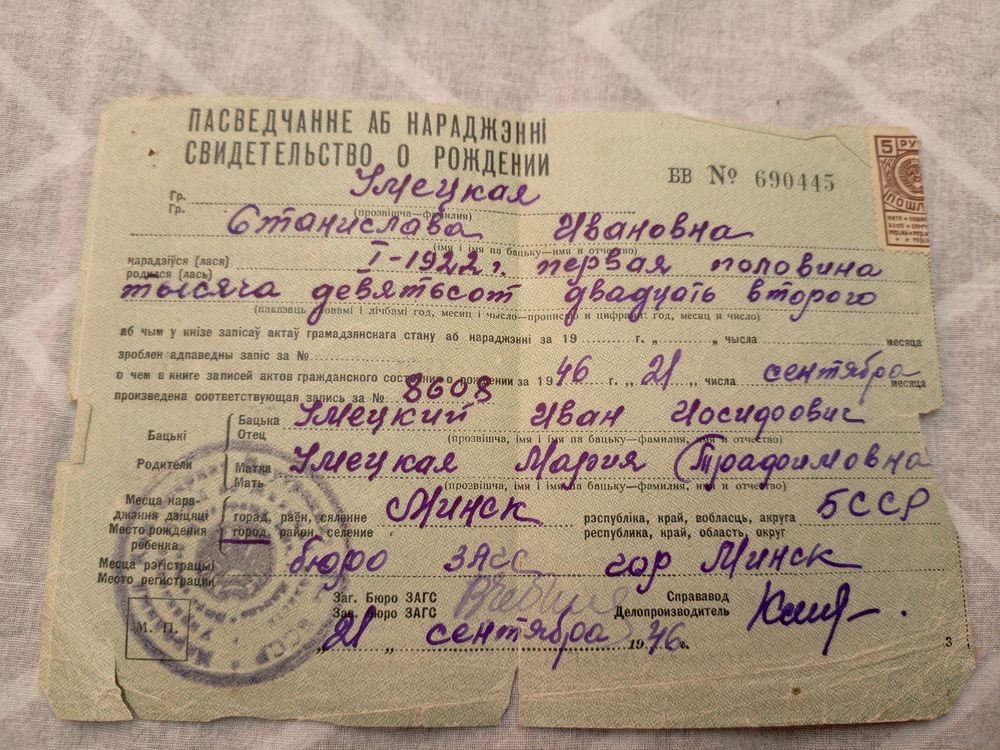 ПАСВЕДЧАННЕ АБ НАРАДЖЭННІ
СВИДЕТЕЛЬСТВО О РОЖДЕНИИ
БВ № 690445
5 РУ
ПОШЛ
Гр. Умецкая
Гр. (прозвішча—фамилия)
Станислава Ивановна
(імя і імя па бацьку—имя и отчество)
нарадзіўся (лася) I-1922 г. первая половина
родился (лась)
тысяча девятьсот двадцать второго
(паказаць словамі і лічбамі год, месяц і чысло—прописью и цифрами: год, месяц и число)
аб чым у кнізе запісаў актаў грамадзянскага стану аб нараджэнні за 19 г. „ „ чысла месяца
зроблен адпаведны запіс за №
о чем в книге записей актов гражданского состояния о рождении за 1946 г. „21„ числа сентября месяца
произведена соответствующая запись за № 8608
Бацька Умецкий Иван Иосидович
Бацькі Отец (прозвішча, імя і імя па бацьку—фамилия, имя и отчество)
Родители Матка Умецкая Мария Трафимовна
Мать (прозвішча, імя і імя па бацьку—фамилия, имя и отчество)
Месца нараджэння дзіцяці горад, раён, сяленне Минск рэспубліка, край, вобласць, акруга БССР
Место рождения ребенка город, район, селение республика, край, область, округ
Месца рэгістрацыі бюро ЗАГС гор Минск
Место регистрации
Заг. Бюро ЗАГС Справавод
Зав. Бюро ЗАГС Делопроизводитель
М. П. „21„ сентября 1946 г. 3